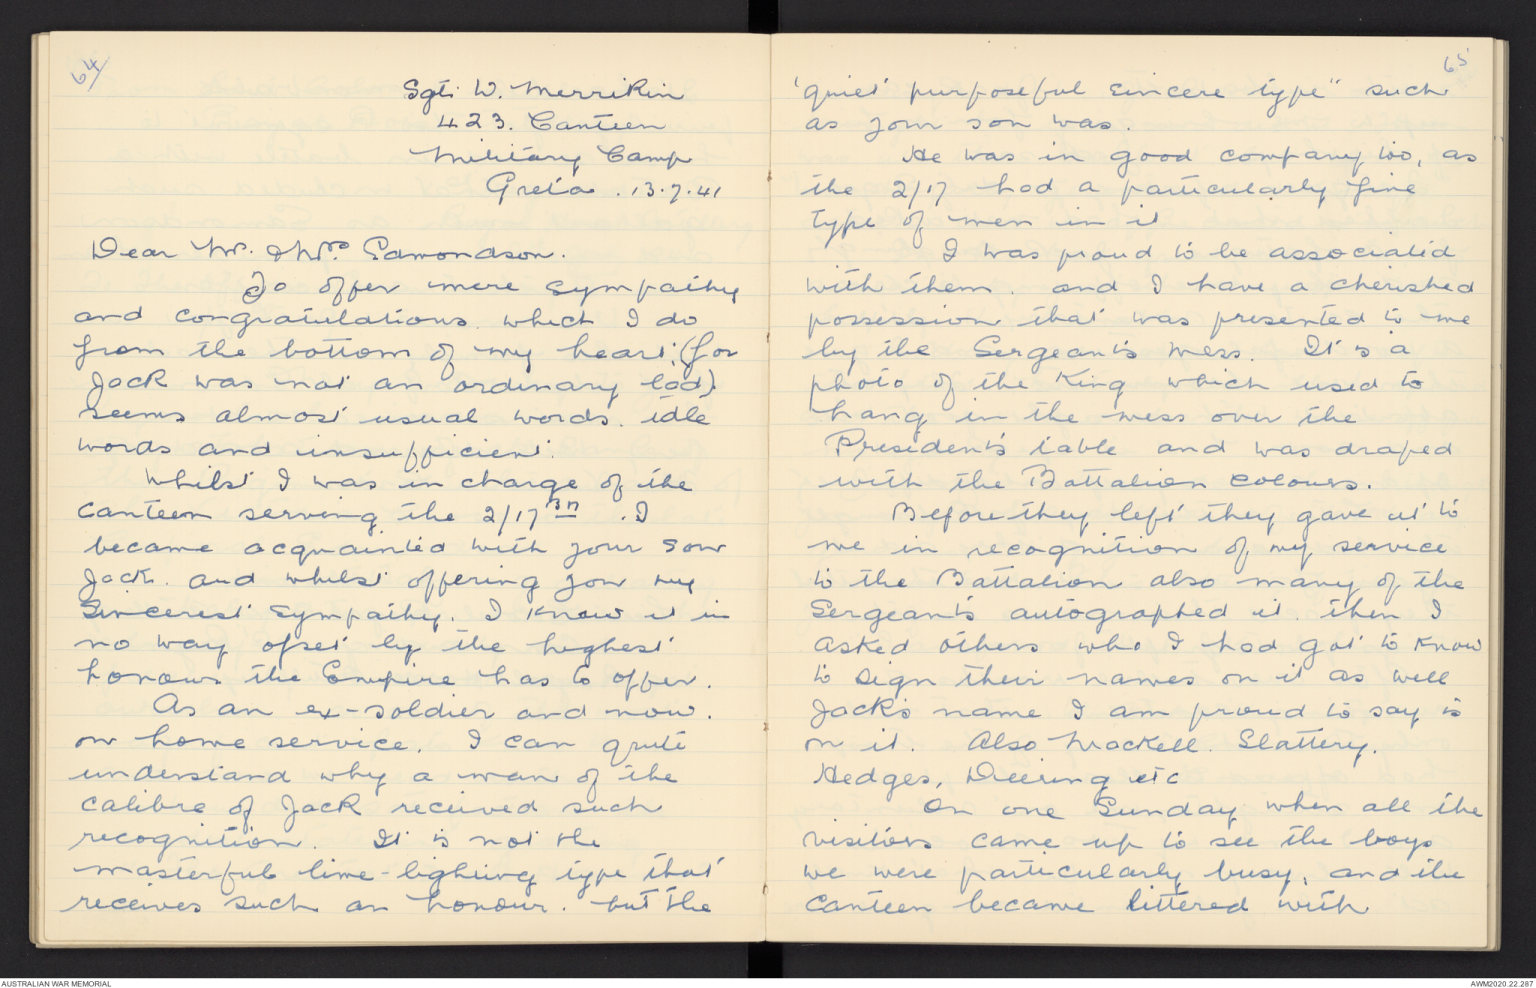 64/
Sgt. W. Merrikin
423. Canteen
Military Camp
Greta. 13.7.41
Dear Mr. & Mrs Edmondson.
To offer mere sympathy
and congratulations which I do
from the bottom of my heart, (for
Jack was not an ordinary lad)
seems almost usual words. idle
words and insufficient.
Whilst I was in charge of the
canteen serving the 2/17 Bn. I
became acquainted with your son
Jack. and whilst offering you my
sincerest sympathy. I know it in
no way ofset by the highest
honours the Empire has to offer.
As an ex-soldier and now.
on home service. I can quite
understand why a man of the
calibre of Jack received such
recognition. It is not the
masterful lime-lighting type that
receives such an honour. but the
65
'quiet purposeful sincere type" such
as your son was.
He was in good company too, as
the 2/17 had a particularly fine
type of men in it
I was proud to be associated
with them. and I have a cherished
possession that was presented to me
by the Sergeants mess. It is a
photo of the King which used to
hang in the mess over the
President's table and was draped
with the Battalion colours.
Before they left they gave it to
me in recognition of my service
to the Battalion also many of the
Sergeants autographed it. then I
asked others who I had got to know
to sign their names on it as well
Jack's name I am proud to say is
on it. Also Mackell. Slattery.
Hedges, Deering etc
On one Sunday when all the
visitors came up to see the boys
we were particularly busy, and the
canteen became littered with
AUSTRALIAN WAR MEMORIAL
AWM2020.22.287